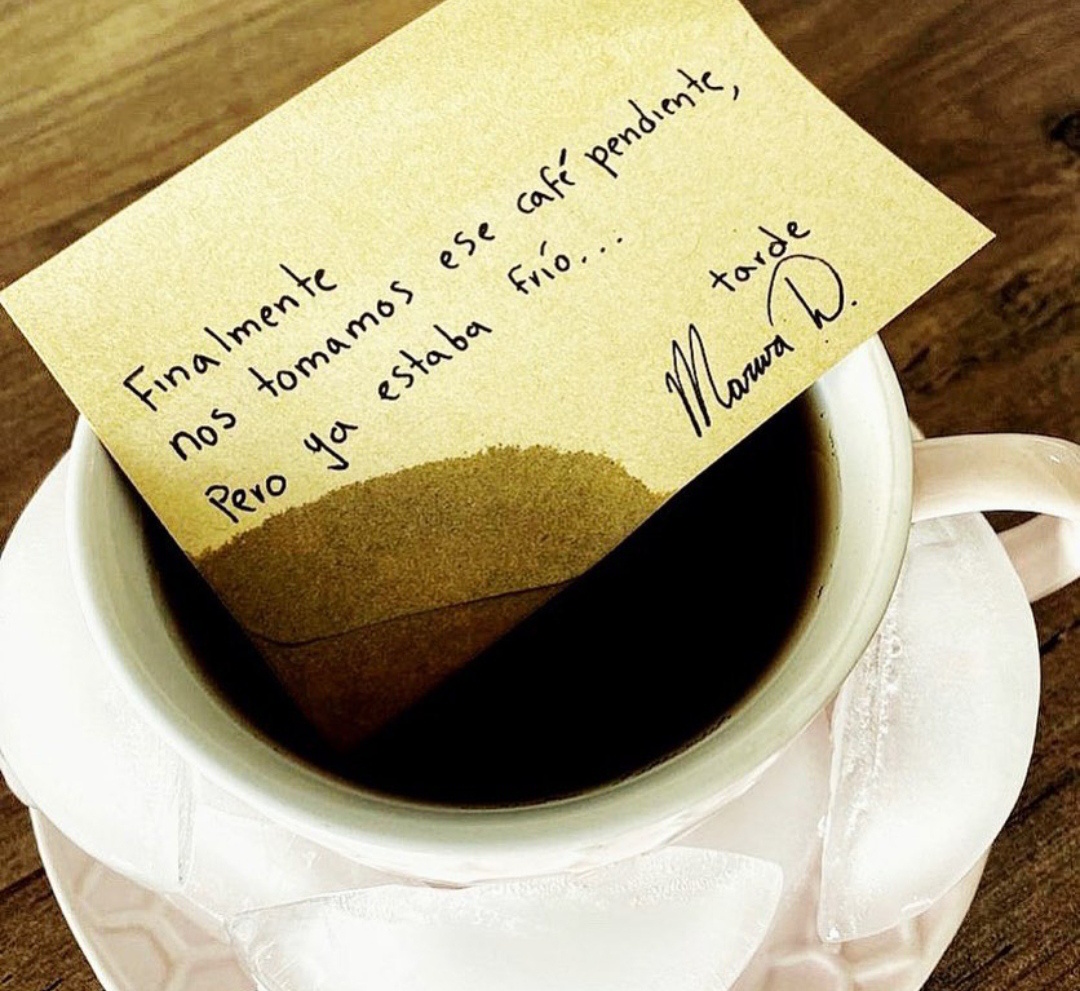 Finalmente
nos tomamos ese café pendiente,
Pero ya estaba frío...
tarde
Marwa D.